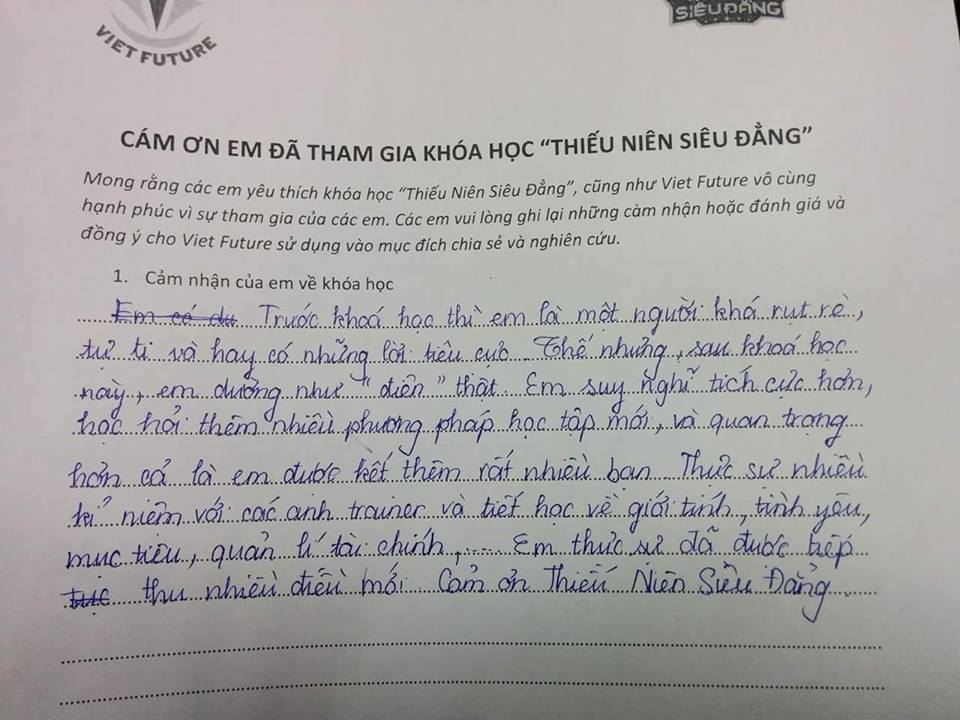 VIET FUTURE
SIÊU ĐẲNG
CÁM ƠN EM ĐÃ THAM GIA KHÓA HỌC “THIẾU NIÊN SIÊU ĐẲNG”
Mong rằng các em yêu thích khóa học “Thiếu Niên Siêu Đẳng”, cũng như Viet Future vô cùng
hạnh phúc vì sự tham gia của các em. Các em vui lòng ghi lại những càm nhận hoặc đánh giá và
đồng ý cho Viet Future sử dụng vào mục đích chia sẻ và nghiên cứu.
1. Cảm nhận của em về khóa học
Em có dư Trước khoá học thì em là một người khá rụt rè,
tự ti và hay có những lời tiêu cực. Thế nhưng, sau khoá học
này, em dường như “điên” thật. Em suy nghĩ tích cực hơn,
học hỏi thêm nhiều phương pháp học tập mới, và quan trọng
hơn cả là em được kết thêm rất nhiều bạn. Thực sự nhiều
kỉ niệm với các anh trainer và tiết học về giới tính, tình yêu,
mục tiêu, quản lí tài chính,... Em thực sự đã được tiếp
tục thu nhiều điều mới. Cảm ơn Thiếu Niên Siêu Đẳng.